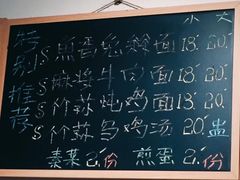 小 大
特别推荐
S 鱼香 面 18. 20.
S 麻酱牛肉面 18. 20.
S 竹荪炖鸡面 13. 20.
S 竹荪乌鸡汤 20. 盅
素菜 2.份 煎蛋 2.份